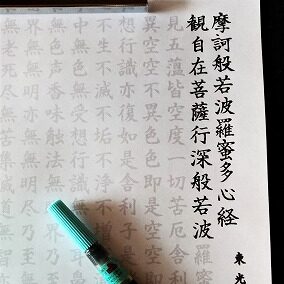 摩訶般若波羅蜜多心経
観自在菩薩行深般若波羅蜜
見五蘊皆空度一切苦厄舎利
異空空不異色色即是空空
想行識亦復如是舎利子是
不生不滅不垢不浄不増
中無色無受想行識無
無色声香味触法無眼界乃至
界無無明亦無無明尽乃至
無老死尽無苦集滅道無
東光